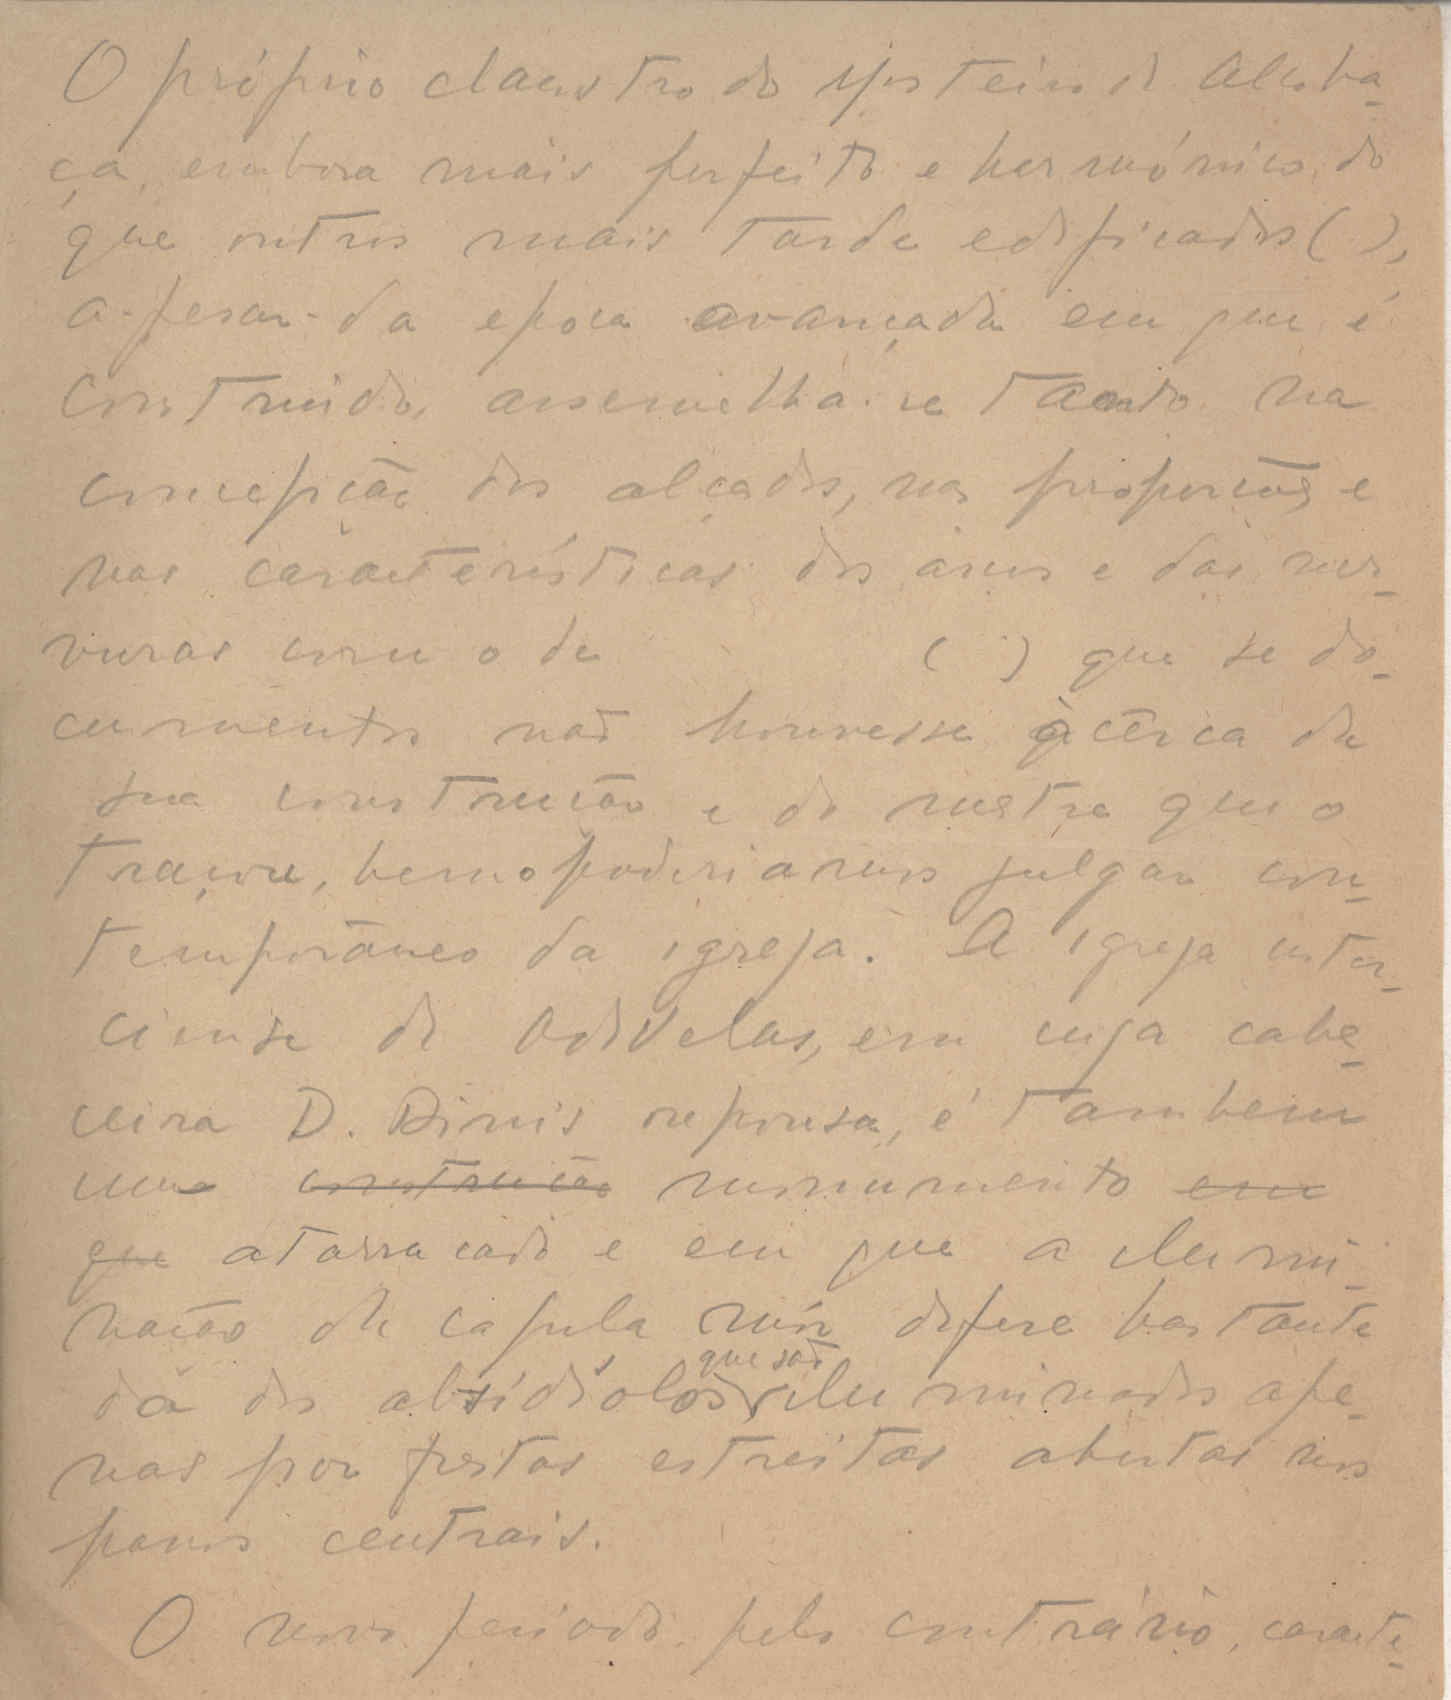 O próprio claustro do mosteiro de Alcoba-
ça, embora mais perfeito e harmónico do
que outros mais tarde edificados ( ),
a-pesar-da epoca avançada em que é
construido, assemelha-se tanto na
concepção dos alçados, nas proporções e
nas características dos arcos e das ner-
vuras com o de ( ) que se do-
cumentos não houvesse àcêrca da
sua construção e do mestre que o
traçou, bem o poderiamos julgar con-
temporâneo da igreja. A igreja cister-
ciense de Odivelas, em cuja cabe-
ceira D. Dinis repousa, é tambem
um construção monumento em
que atarracado e em que a ilumi-
nação da capela mór difere bastante
da dos absidíolos que são iluminados ape-
nas por frestas estreitas abertas nos
panos centrais.
O novo periodo, pelo contrário, caracte-